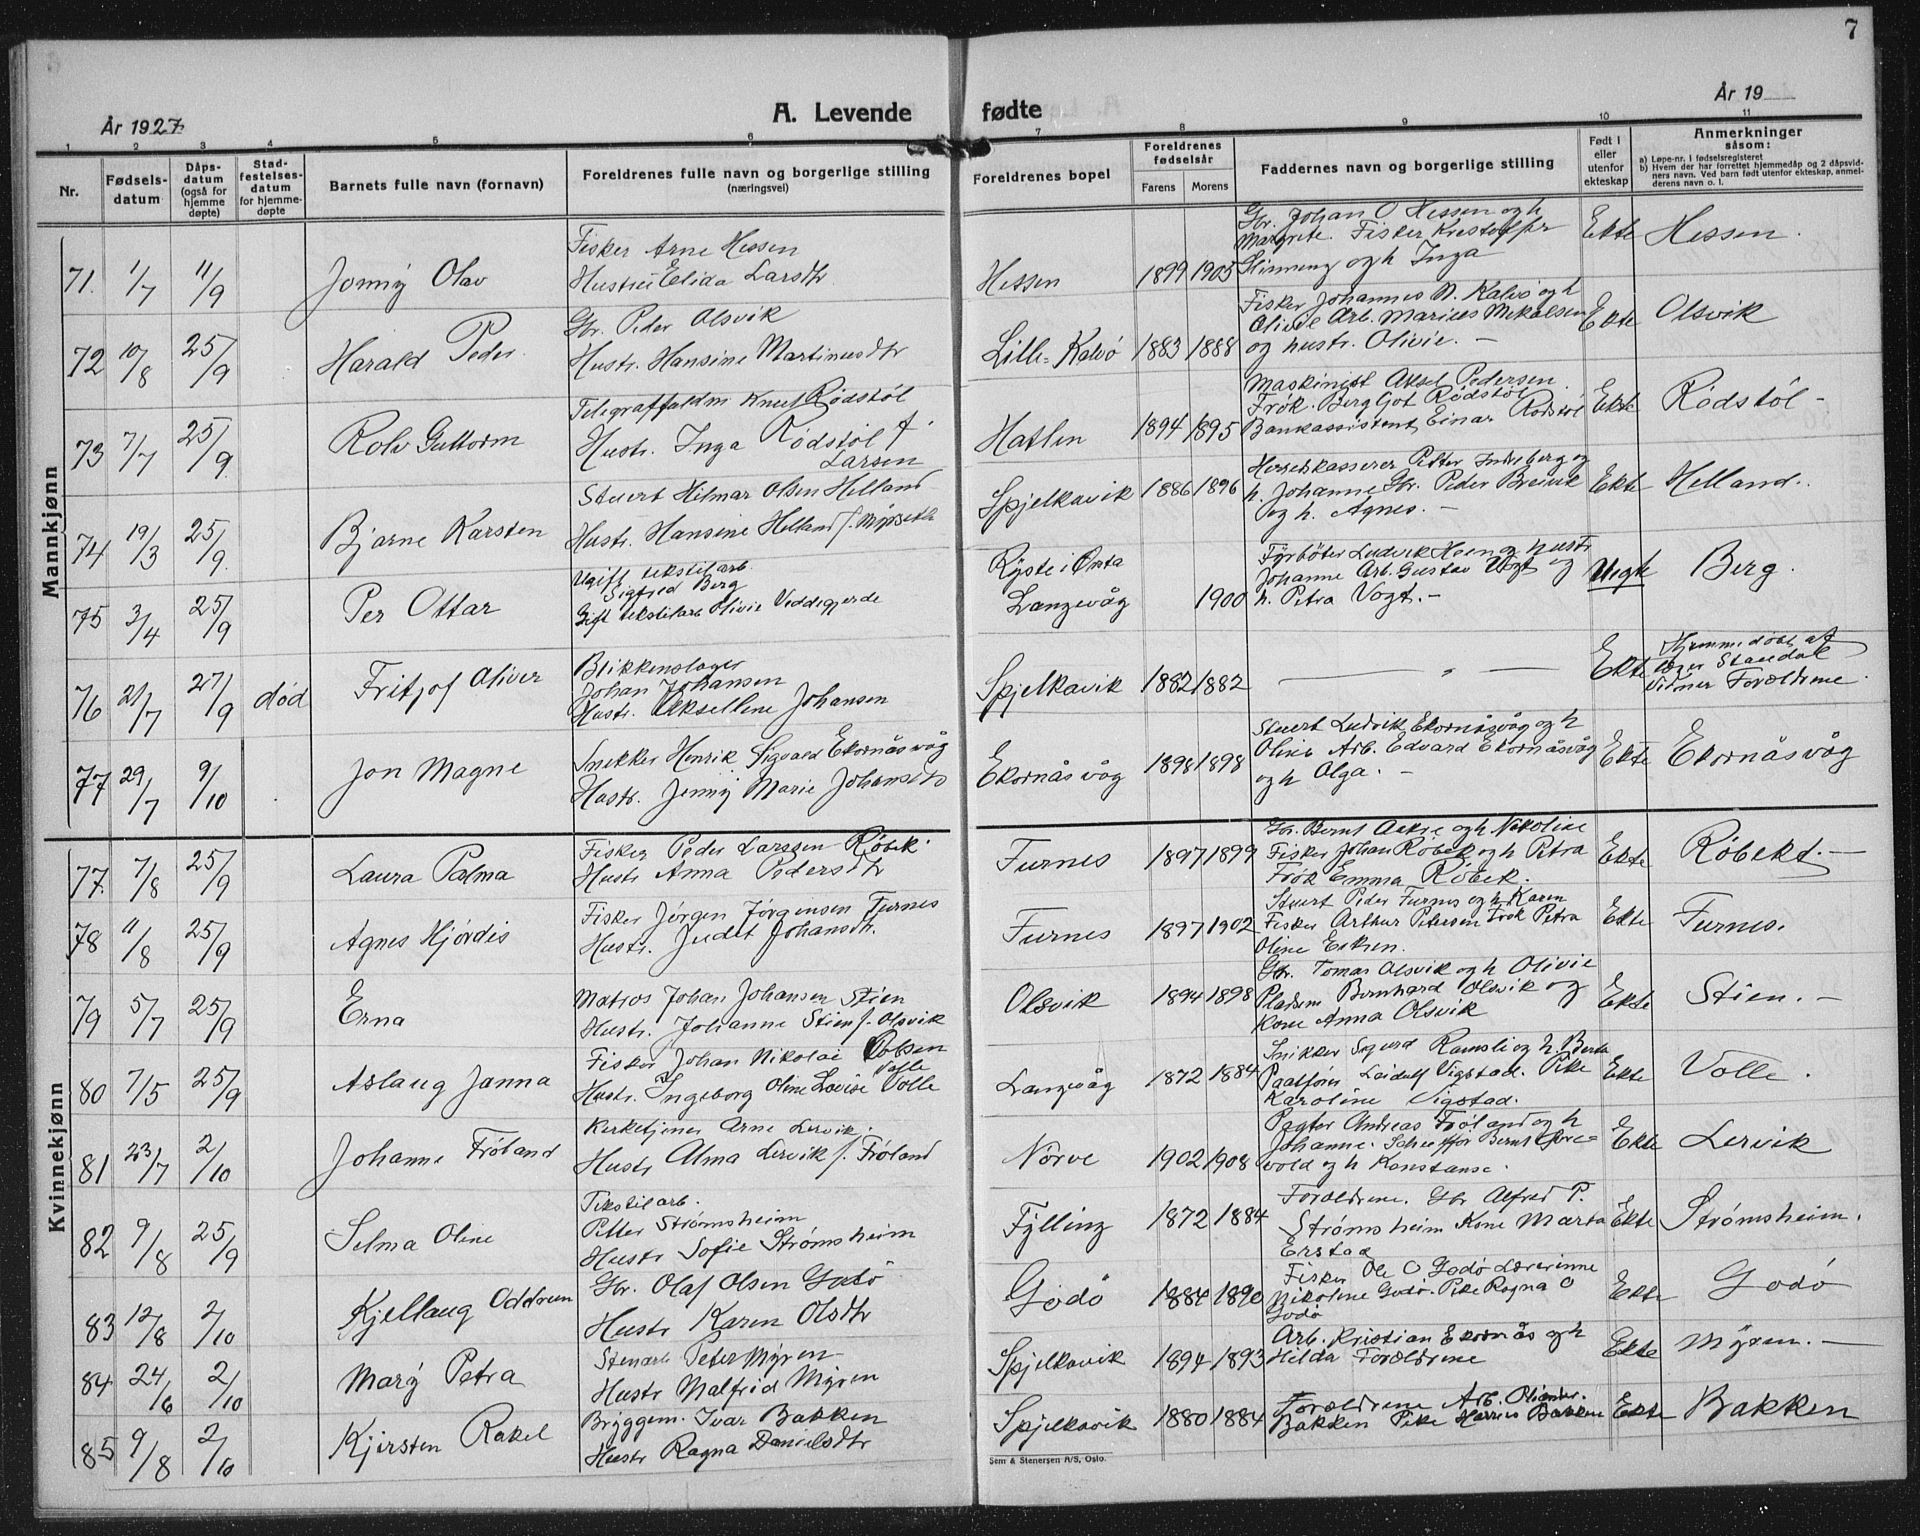 7
År 1927
A. Levende fødte
År 19
1 2 3 4 5 6 7 8 9 10 11
Nr.
Fødsels-
datum
Dåps-
datum
(også for
hjemme
døpte)
Stad-
festelses-
datum
for hjemme-
døpte
Barnets fulle navn (fornavn)
Foreldrenes fulle navn og borgerlige stilling
(næringsvei)
Foreldrenes bopel
Foreldrenes
fødselsår
Farens Morens
Faddernes navn og borgerlige stilling
Født i
eller
utenfor
ekteskap
Anmerkninger
såsom:
a) Løpe-nr. i fødselsregisteret
b) Hvem der har forrettet hjemmedåp og 2 dåpsvid-
ners navn. Ved barn født utenfor ekteskap, anmel-
derens navn o. l.
Mannkjønn
71. 1/7 11/9 Jonny Olav
Fisker Arne Hessen
Hustru Elida Larsdtr
Hessen 1899 1905
Gbr. Johan O Hessen og h
Margrete. Fisker Kristoffer
og h Inga
Ekte Hessen.
72 10/8 25/9 Harald Peder.
Gbr. Peder Olsvik
Hustr. Hansine Martinusdtr
Lille-Kalvø 1883 1888
Fisker Johannes N. Kalvø og h
Olivie Arb. Marius Mekalsen
og hustr. Olivie. -
Ekte Olsvik
73 7/7 25/9 Rolv Guttorm
Knut Rødstøl
Hustr. Inga Rødstøl f.
Larsen
Hatlen 1894 1895
Maskinist Aksel Pedersen.
Frøk. Berg Got Rødstøl
Bankassistent Einar Rødstøl
Ekte Rødstøl -
74 19/3 25/9 Bjarne Karsten
Stuert Hilmar Olsen Helland
Hustr. Hansine Helland f. Myrseth
Spjelkavik 1886 1896
Herredskasserer Petter Indreberg og
h. Johanne Gbr. Peder Breivik
og h. Agnes. -
Ekte Helland.
75 3/4 25/9 Per Ottar
Ugift tekstilarb
Sigfred Berg
Gift tekstilarb Olivie Veddegjerde
Ryste i Ørsta
Langevåg 1900
Fyrbøter Ludvik Heen og hustr
Johanne Arb. Gustav Vogt og
h. Petra Vogt. -
Uegte Berg.
76 21/7 27/9 død Fritjof Oliver
Blikkenslager
Johan Johansen
Hustr. Aksellene Johansen
Spjelkavik 1882 1882
— „ —
Ekte
Hjemmedøbt af
Standal
Vidner Forældrene.
77 29/7 9/10 Jon Magne
Snekker Henrik Sigvald Ekornåsvåg
Hustr. Jenny Marie Johansdtr
Ekornåsvåg 1898 1898
Stuert Ludvik Ekornåsvåg og h
Oline Arb. Edvard Ekornåsvåg
og h Olga. -
Ekte Ekornåsvåg
Kvinnekjønn
77. 7/8 25/9 Laura Palma
Fisker Peder Larssen Røbek.
Hustr Anna Pedersdtr
Furnes 1897 1899
Gbr. Bernt Aakre og h Nikoline
Fisker Johan Røbek og h Petra
Frøk Emma Røbek.
Ekte Røbekt. -
78 11/8 25/9 Agnes Hjørdis
Fisker Jørgen Jørgensen Furnes
Hustr. Judit Johansdtr.
Furnes 1897 1902
Stuert Peder Furnes og h Karen
Fisker Arthur Petersen Frøk Petra
Oline
Ekte Furnes.
79 5/7 25/9 Erna
Matros Johan Johansen Stien
Hustr. Johanne Stien f. Olsvik
Olsvik 1894 1898
Gbr. Tomas Olsvik og h Olivie
Bernhard Olsvik og
Kone Anna Olsvik
Ekte Stien. -
80 7/5 25/9 Aslaug Janna
Fisker Johan Nikolai
Volle
Hustr. Ingeborg Oline Lovise Volle
Langevåg 1872 1884
Snikker Sigurd Ramsli og h Berta
Leidulf Vigstad. Pike
Karoline Vigstad.
Ekte Volle.
81 23/7 2/10 Johanne Frøland
Kirketjener Arne Lervik.
Hustr Alma Lervik f. Frøland
Nørve 1902 1908
Andreas Frøland og h
Johanne. Bernt
og h Konstanse.
Ekte Lervik
82 9/8 25/9 Selma Oline
Tekstilarb.
Petter Strømsheim
Hustr Sofie Strømsheim
Fylling 1872 1884
Forældrene. Gbr Alfred P.
Strømsheim Kone Marta
Erstad
Ekte Strømsheim.
83 12/8 2/10 Kjellaug Oddrun
Gbr. Olaf Olsen Godø
Hustr Karen Olsdtr
Godø 1884 1890
Fisker Ole O Godø Lærerinne
Nikoline Godø. Pike Ragna O
Godø
Ekte Godø
84 24/6 2/10 Mary Petra
Stenarb Peter Myren
Hustr Malfrid Myren
Spjelkavik 1894 1893
Arb. Kristian Ekornås og h
Hilda Forældrene
Ekte Myren. -
85 9/8 2/10 Kjersten Rakel
Bryggem. Ivar Bakken
Hustr Ragna Danielsdtr
Spjelkavik 1880 1884
Forældrene Arb.
Bakken Pike Bakken
Ekte Bakken
Sem & Stenersen A/S, Oslo.